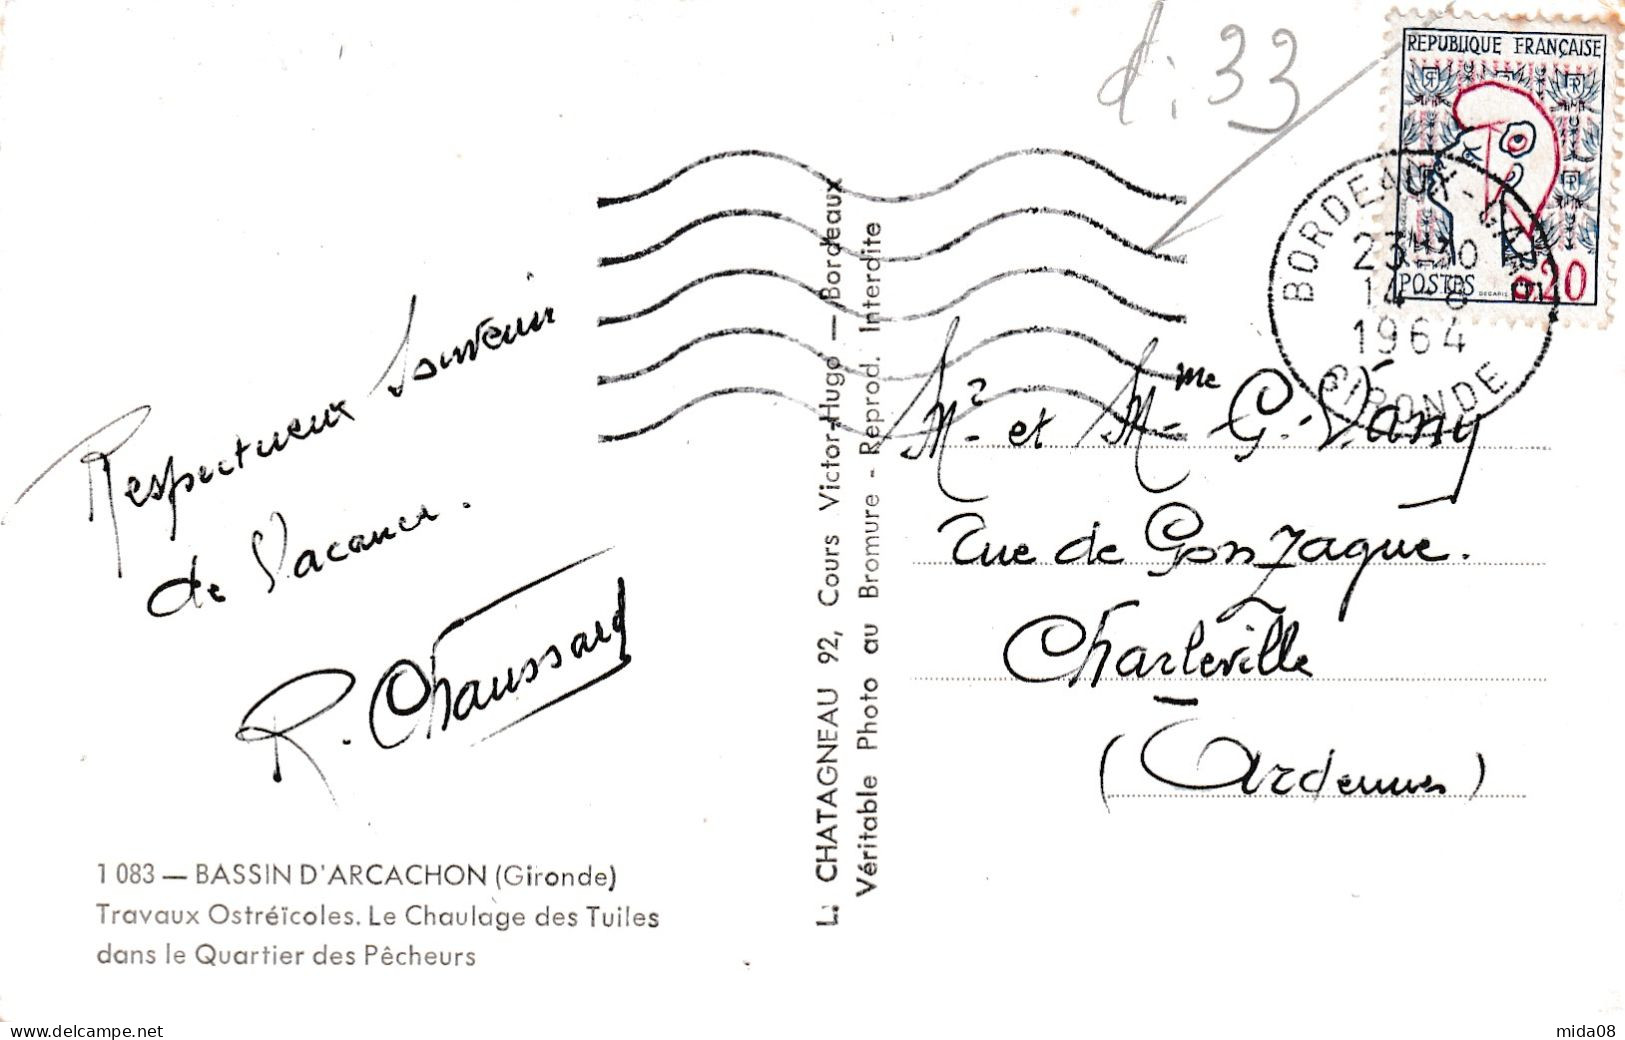 d: 33
REPUBLIQUE FRANÇAISE
POSTES
0,20
BORDEAUX - GARE
1964
GIRONDE
Respectueux souvenir
de Vacances.
R. Chaussard
Mr. et Mme G. Vany
rue de Gonzague.
Charleville
(Ardennes)
L. CHATAGNEAU 92, Cours Victor-Hugo — Bordeaux
Véritable Photo au Bromure - Reprod. Interdite
1 083 — BASSIN D'ARCACHON (Gironde)
Travaux Ostréïcoles. Le Chaulage des Tuiles
dans le Quartier des Pêcheurs
www.delcampe.net
mida08